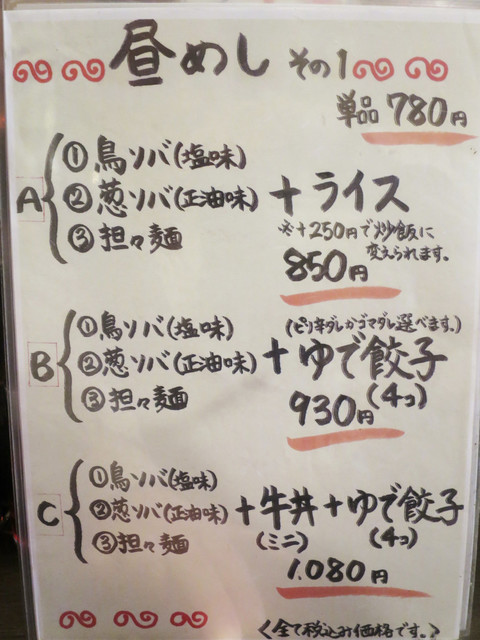 昼めし その1
単品 780円
A
①鳥ソバ(塩味)
②葱ソバ(正油味)
③担々麺
+ライス
※+250円で炒飯に
変えられます。
850円
B
①鳥ソバ(塩味)
②葱ソバ(正油味)
③担々麺
(ピリ辛ダレかゴマダレ選べます。)
+ゆで餃子
(4コ)
930円
C
①鳥ソバ(塩味)
②葱ソバ(正油味)
③担々麺
+牛丼+ゆで餃子
(ミニ) (4コ)
1.080円
<全て税込み価格です。>